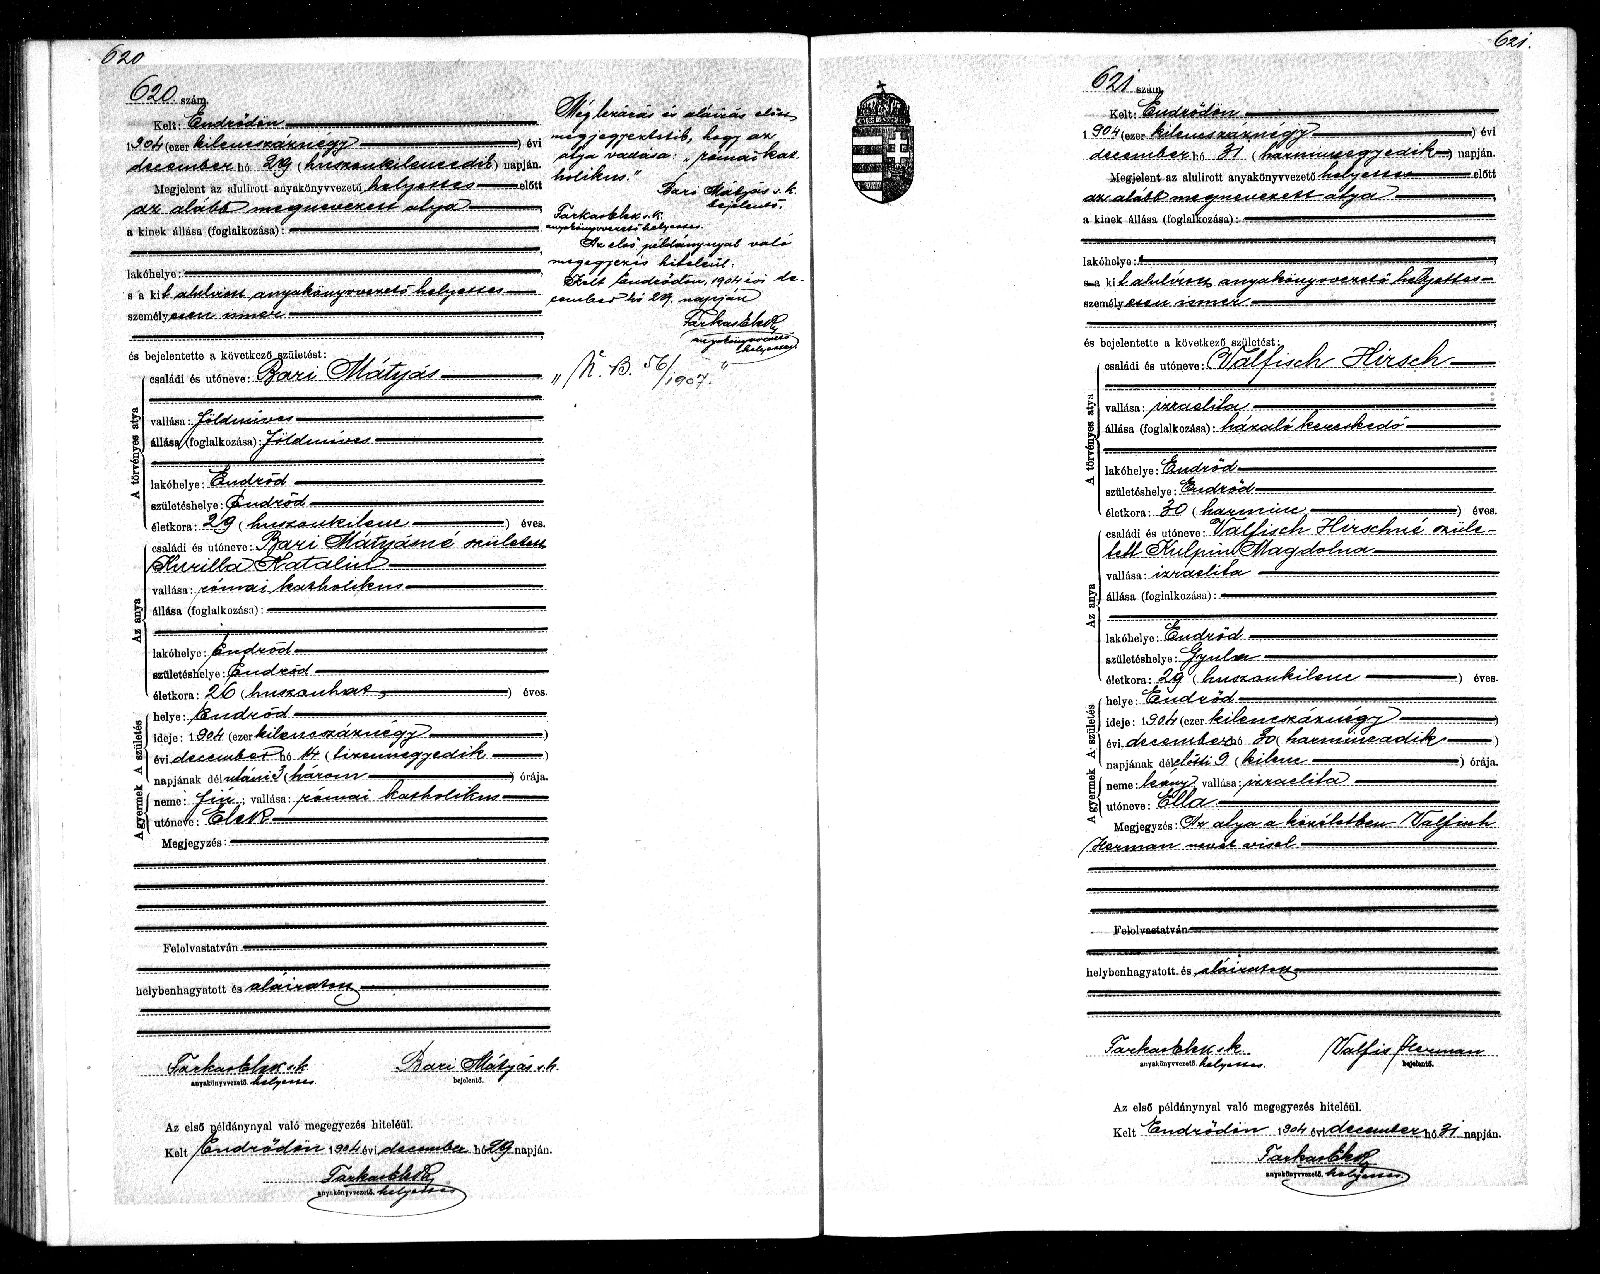 620
620 szám.
Kelt: Endrődön
1904 (ezer kilencszáznégy) évi
december hó 29 (huszonkilencedik) napján.
Megjelent az alulirott anyakönyvvezető helyettes előtt
az alább megnevezett atya
a kinek állása (foglalkozása):
lakóhelye:
s a kit alulírott anyakönyvvezető helyettes
személyesen ismer
és bejelentette a következő születést:
A törvényes atya
családi és utóneve: Bari Mátyás
vallása: földmíves
állása (foglalkozása): földmíves
lakóhelye: Endrőd
születéshelye: Endrőd
életkora: 29 (huszonkilenc) éves.
Az anya
családi és utóneve: Bari Mátyásné született
Kurilla Katalin
vallása: római katholikus
állása (foglalkozása):
lakóhelye: Endrőd
születéshelye: Endrőd
életkora: 26 (huszonhat) éves.
A születés
helye: Endrőd
ideje: 1904 (ezer kilencszáznégy)
évi december hó 14 (tizennegyedik)
napjának délutáni 3 (három) órája.
A gyermek
neme: fiú; vallása: római katholikus
utóneve: Elek
Megjegyzés:
Felolvastatván
helybenhagyatott és aláíratott
Farkas Elek s. k. Bari Mátyás s. k.
anyakönyvvezető helyettes. bejelentő.
Az első példánynyal való megegyezés hiteléül.
Kelt Endrődön 1904 évi december hó 29 napján.
Farkas Elek
anyakönyvvezető helyettes
Még lezárás és aláírás előtt
megjegyeztetik, hogy az
atya vallása: „római kat-
holikus."
Bari Mátyás s. k.
bejelentő.
Farkas Elek s. k.
anyakönyvvezető helyettes.
Az első példánynyal való
megegyezés hiteléül.
Kelt Endrődön, 1904 évi de-
cember hó 29. napján
Farkas Elek
anyakönyvvezető
helyettes
„ N. B. 56/1907. "
621.
621 szám.
Kelt: Endrődön
1904 (ezer kilencszáznégy) évi
december hó 31 (harminczegyedik) napján.
Megjelent az alulirott anyakönyvvezető helyettes előtt
az alább megnevezett atya
a kinek állása (foglalkozása):
lakóhelye:
s a kit alulírott anyakönyvvezető helyettes
személyesen ismer
és bejelentette a következő születést:
A törvényes atya
családi és utóneve: Valfisch Hirsch
vallása: izraelita
állása (foglalkozása): házaló kereskedő
lakóhelye: Endrőd
születéshelye: Endrőd
életkora: 30 (harminc) éves.
Az anya
családi és utóneve: Valfisch Hirschné szüle-
tett Kulpin Magdolna
vallása: izraelita
állása (foglalkozása):
lakóhelye: Endrőd
születéshelye: Gyula
életkora: 29 (huszonkilenc) éves.
A születés
helye: Endrőd
ideje: 1904 (ezer kilencszáznégy)
évi december hó 30 (harmincadik)
napjának délelőtti 9 (kilenc) órája.
A gyermek
neme: leány, vallása: izraelita
utóneve: Ella
Megjegyzés: Az atya a közéletben Valfisch
Herman nevet visel
Felolvastatván
helybenhagyatott és aláíratott
Farkas Elek s. k. Valfis Herman
anyakönyvvezető helyettes. bejelentő.
Az első példánynyal való megegyezés hiteléül.
Kelt Endrődön 1904 évi december hó 31 napján.
Farkas Elek
anyakönyvvezető helyettes.